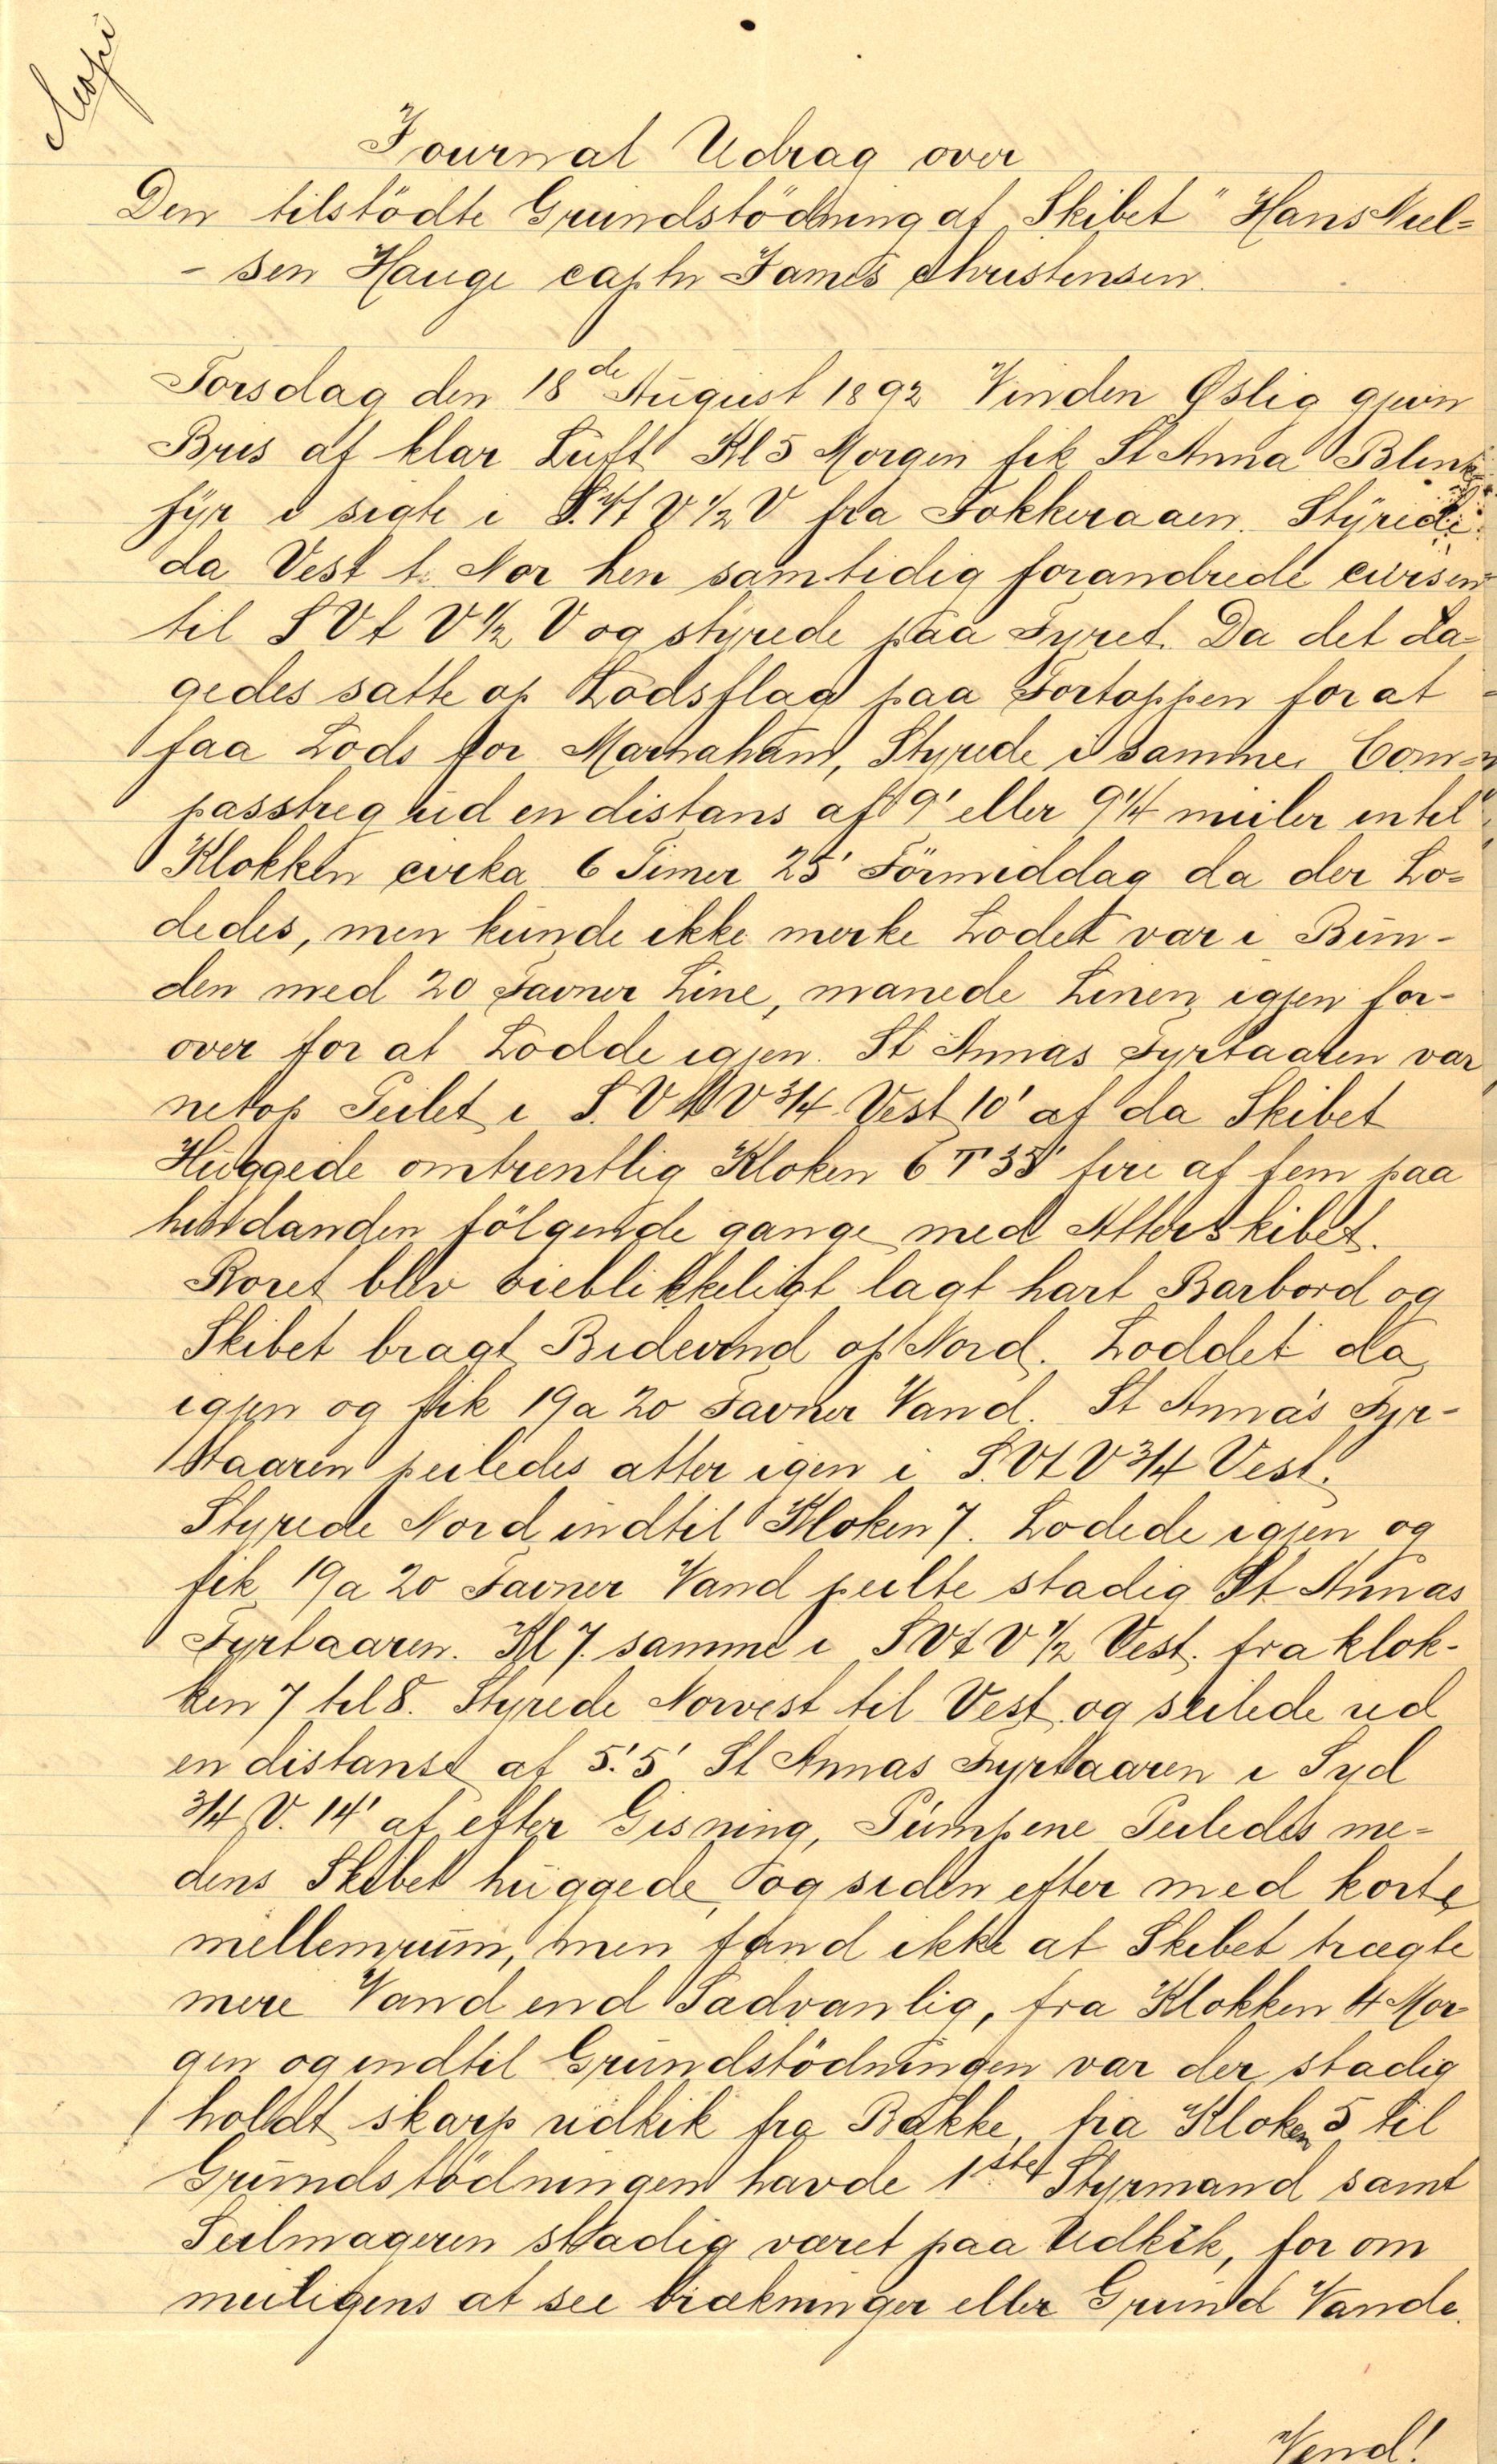 Kopi
Journal Udrag over
Den tilstödte Grundstödning af Skibet "Hans Niel=
- sen Hauge captn James Christensen.
Torsdag den 18de August 1892 Vinden Øslig gjevn
Bris af klar Luft Kl 5 Morgen fik St Anna Blink
fyr i sigte i S.Vt V 1/2 V fra Fokkeraaen. Styrede
da Vest t. Nor hen samtidig forandrede cursen
til S V t V 1/2 V og styrede paa Fyret. Da det Da=
gedes satte op Lodsflag paa Fortoppen for at
faa Lods for Marnaham, Styrede i samme Com=
passtreg ud en distans af 9' eller 9 1/4 miiler intil
Klokken cirka 6 Timer 25' Förmiddag da der Lo=
dedes, men kunde ikke merke Lodet var i Bun-
den med 20 Favner Line, manede Linen igjen for-
over for at Lodde igjen. St Annas Fyrtaaren var
netop Peilet i S. V t V 3/4 Vest 10' af da Skibet
Huggede omtrentlig Kloken 6 T 35' fire af fem paa
hindanden fölgende gange med Atterskibet.
Roret blev øieblikkeligt lagt hart Barbord og
Skibet bragt Bidevind op Nord. Loddet da
igjen og fik 19 a 20 Favner Vand. St Anna's Fyr-
taaren peiledes atter igen i S. Vt V 3/4 Vest.
Styrede Nord indtil Kloken 7. Lodede igjen og
fik 19 a 20 Favner Vand peilte stadig St. Annas
Fyrtaaren. Kl 7. samme i S Vt V 1/2 Vest. fra klok-
ken 7 til 8. Styrede Norvest til Vest og seilede ud
en distanse af 5.'5' St Annas Fyrtaaren i Syd
3/4 V. 14' af efter Gisning, Pumpene Peiledes me=
dens Skibet huggede, og siden efter med korte
mellemrum, men fand ikke at Skibet trægte
mere Vand end Sadvanlig, fra Klokken 4 Mor=
gen og indtil Grundstödningen var der stadig
holdt skarp udkik fra Bakke, fra Kloken 5 til
Grundstödningen havde 1ste Styrmand samt
Seilmageren stadig været paa Udkik, for om
meiligens at see brækninger eller Grund Vande.
Vend!